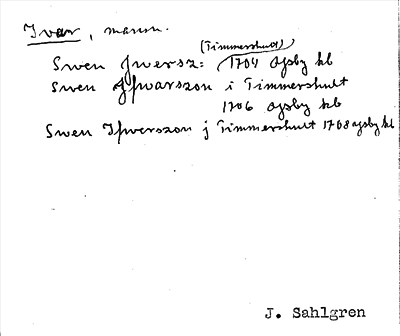 Ivar, mansn.
(Timmershult)
Swen Jwersz: 1704 Ogsby kb
Swen Jfwarszon i Timmershult
1706 Ogsby kb
Swen Ifwerszon j Timmershult 1708 Ogsby kb
J. Sahlgren